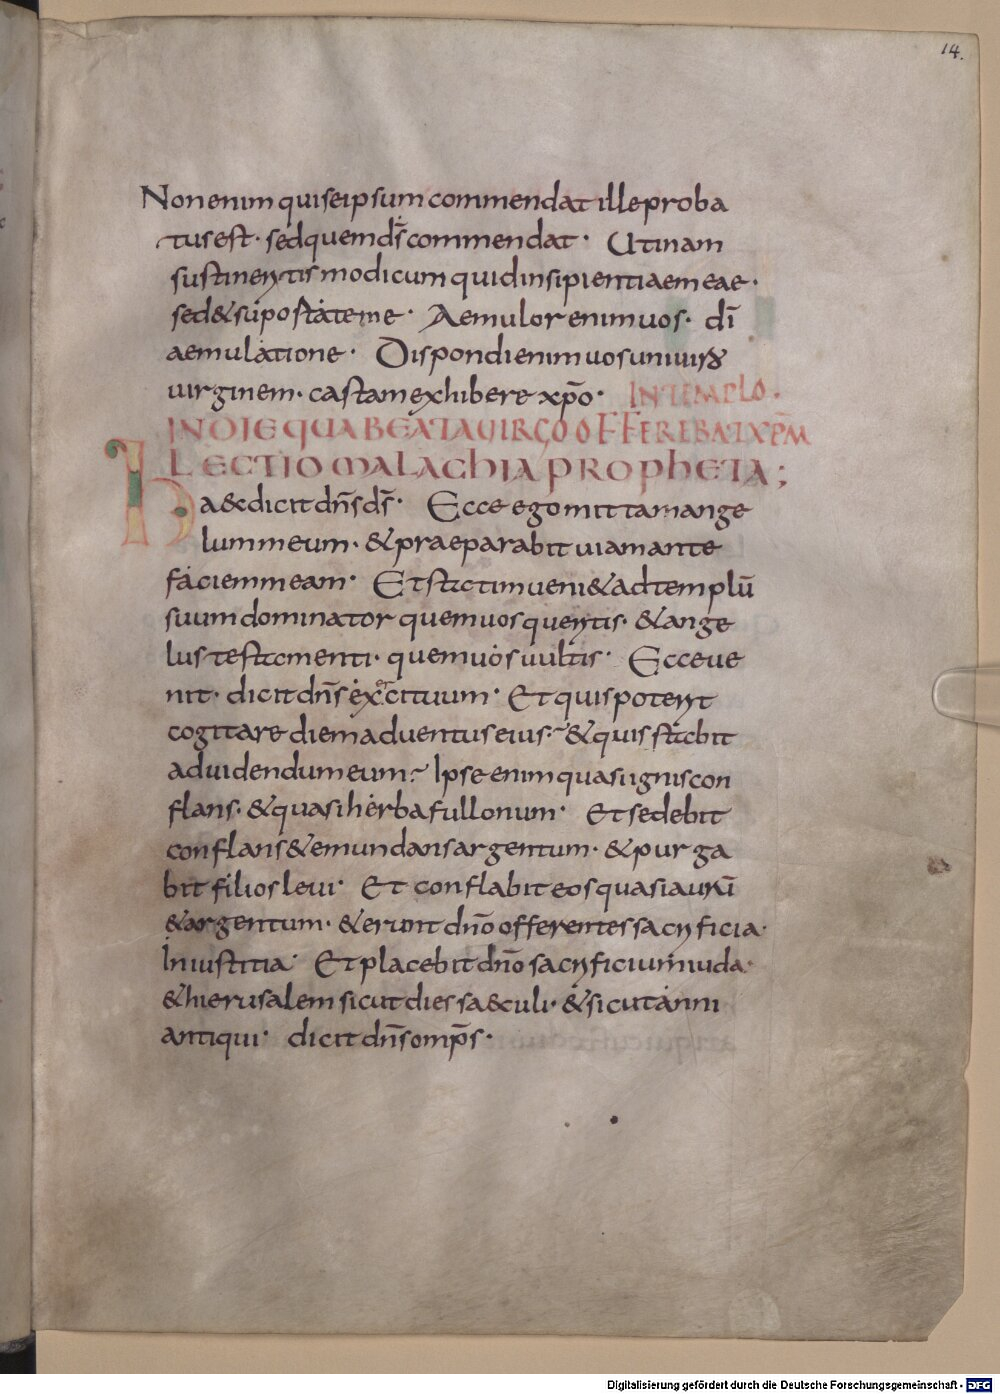 14.
Non enim qui seipsum commendat ille proba
tus est · sed quem d̄s commendat · Utinam
sustineritis modicum quid insipientiae meae ·
sed & supostate me · Aemulor enim uos · dī
aemulatione · Dispondi enim uos uni uiro
uirginem · castam exhibere xp̄o · IN TEMPLO ·
IN DIE QUA BEATA VIRGO OFFEREBAT XP̄M
LECTIO MALACHIA PROPHETA ;
Ha&c dicit dn̄s d̄s · Ecce ego mittam ange
lum meum · & praeparabit uiam ante
faciem meam · Et statim ueni& ad templū
suum dominator quem uos queritis · & ange
lus testamenti · quem uos uultis · Ecce ue
nit · dicit dn̄s exercituum · Et quis poterit
cogitare diem aduentus eius · & quis stabit
ad uidendum eum · Ipse enim quasi ignis con
flans · & quasi herba fullonum · Et sedebit
conflans & emundans argentum · & purga
bit filios leui · Et conflabit eos quasi aurū
& argentum · & erunt dn̄o offerentes sacrificia
In iustitia · Et placebit dn̄o sacrificium iuda ·
& hierusalem sicut dies sa&culi · & sicut anni
antiqui · dicit dn̄s omp̄s ·
Digitalisierung gefördert durch die Deutsche Forschungsgemeinschaft - DFG